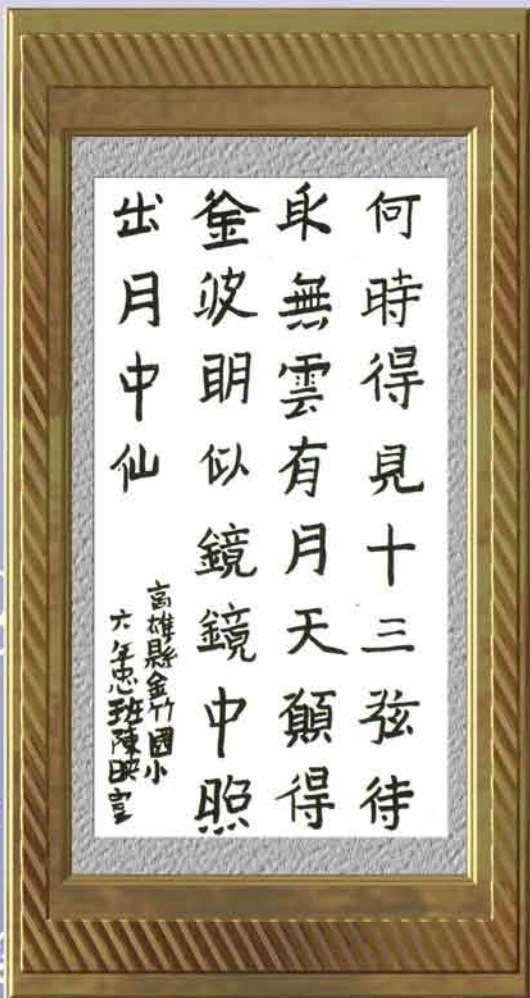 何時得見十三弦待
取無雲有月天願得
金波明似鏡鏡中照
出月中仙
高雄縣金竹國小
六年忠班陳映